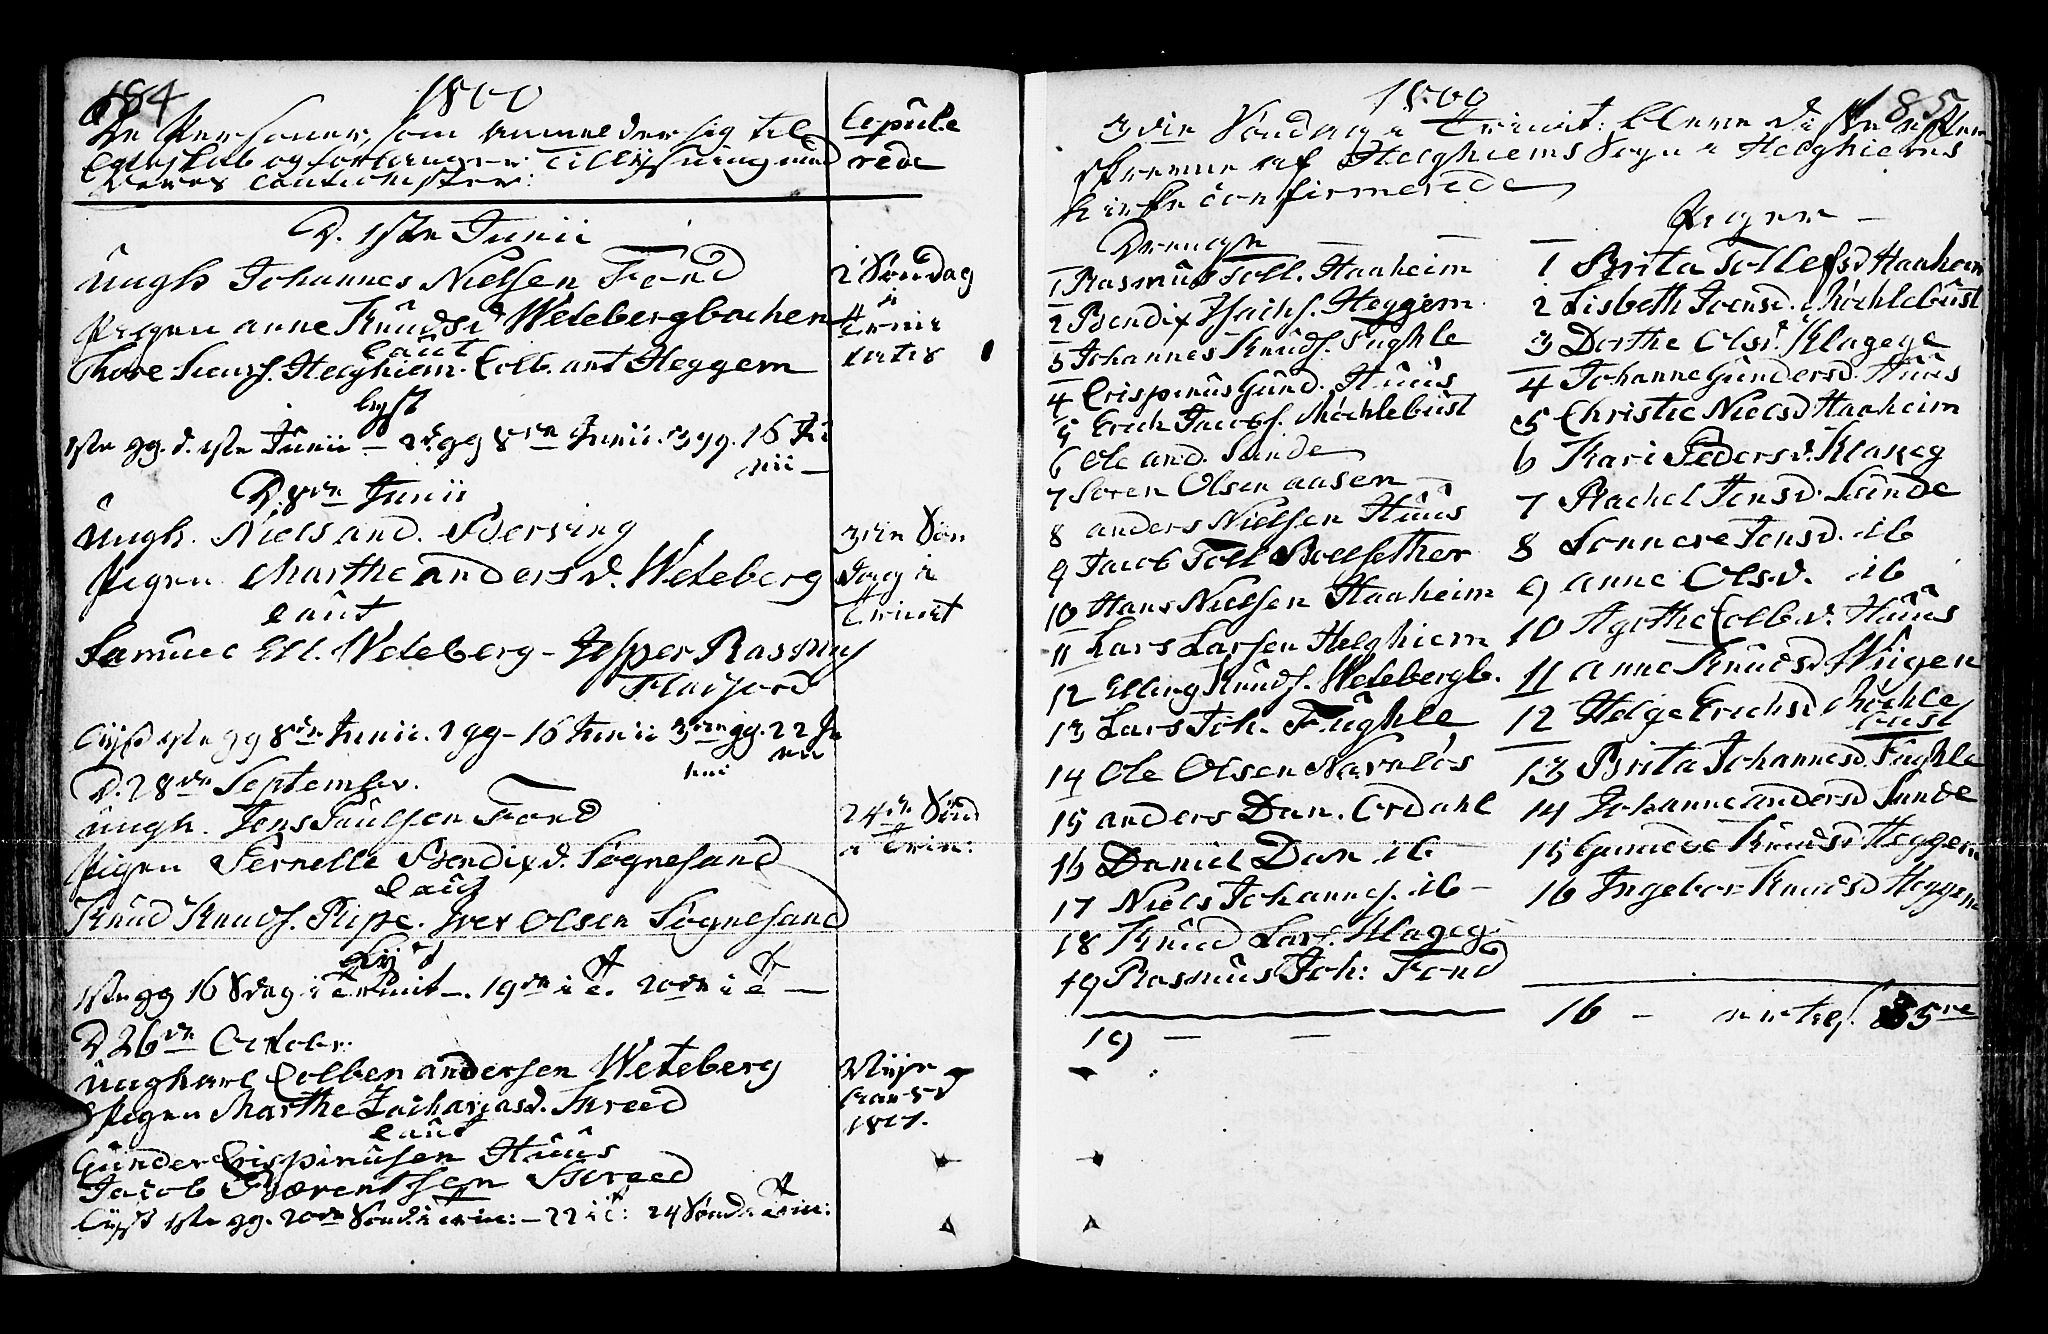 184
1800
De Personer, som anmelder sig til
Egteskab og forlanger Tillysning med
Deres Cautionister:
Copule
rede
D. 1ste Junii
Ungk Johannes Nielsen Fond
Pigen anne Knudsd Wetebergbachen
Caut
Thore Siurs. Helghiem. Colb. ant Heggem
lyst
1ste gg. d. 1ste Junii – 2d gg 8de Junii. 3 gg. 16 Ju
nii –
2 Søndag
a
Trini
tatis
D. 8de Junii
Ungk. Niels and.
Pigen Marthe andersd. Weteberg
Caut
Samuel Ell. Weteberg – Jesper Rasmus
lyst 1ste gg 8de Junii. 2 gg – 16 Junii 3die gg. 22 Ju
nii
3die Søn
dag a
Trinit
D. 28de September.
Ungk. Jens Paulsen Fond
Pigen Pernelle Bendixd. Søgnesand
Caut
Knud Knuds. Ripe. Iver Olsen Søgnesand
Lyst
1ste gg 16 Sdag i Trinit –. 19de i T. 20de i T –
24de Sønd
a Trin:
D 26de October
Ungkarl Colben andersen Weteberg
Pigen Marthe Zachariasd. Skreed
Caut
Gunder Crispinusen Huus
Jacob Bærentsen Skreed
lyst 1ste gg. 20de Sønd. i Trin: – 22 i T: 24 Sønd. Trin:
1801.
1800
185
3die Søndag a Trinit: bleve disse efter
skrevne af Helghiems Sogn i Helghiems
kirke confirmerede
Drenge
1 Rasmus Toll. Haaheim
2 Bendix Isachs. Heggem
3 Johannes Knuds. Fughle
4 Crispinus Gund. Huus
5 Erich Jacobs. Møchlebust
6 Ole and. Sunde
7 Søren Olsen aasen
8 anders Nielsen Huus
9 Jacob Toll
10 Hans Nielsen Haaheim
11 Lars Larsen Helghiem
12 Elling Knuds. Wetebergb.
13 Lars Joh. Fughle
14 Ole Olsen Navnløs
15 anders Dan. Ordahl
16 Daniel Dan ib –
17 Niels Johannes. ib –
18 Knud Lars. Klageg
19 Rasmus Joh: Fond
19 –
Piger –
1 Brita Tollefsd Haaheim
2 Lisbeth Joensd. Møchlebust
3 Dorthe Olsd. Klagege
4 Johanne Gundersd. Huus
5 Christie Nielsd Haaheim
6 Kari Pedersd. Klageg
7 Rachel Jensd. Sunde
8 Jensd. ib
9 anne Olsd. ib
10 Agathe Colb.d. Huus
11 anne Knudsd Wiigen
12 Helge Erichsd Møchle
bust
13 Brita Johannesd. Fughle
14 Johanne andersd Sunde
15 Gunilde Knudsd Heggem
16 Ingebor Knudsd Heggem
16 –